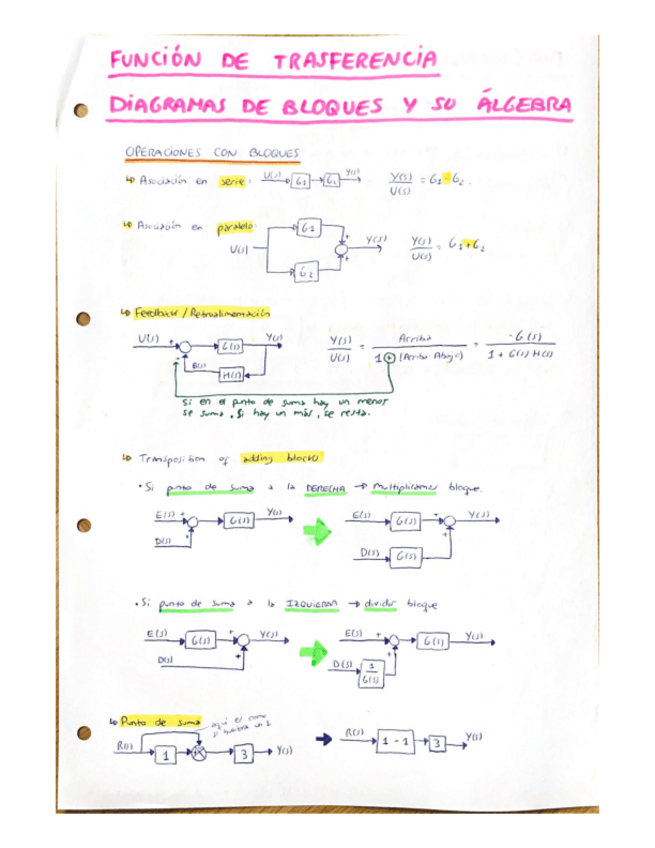 FUNCIÓN DE TRASFERENCIA
DIAGRAMAS DE BLOQUES Y SU ÁLGEBRA
OPERACIONES CON BLOQUES
↳ Asociación en serie: U(s) G1 G2 Y(s) Y(s)/U(s) = G1 · G2.
↳ Asociación en paralelo:
U(s) G1 G2 + + Y(s) Y(s)/U(s) = G1+G2
↳ Feedback / Retroalimentación
U(s) + - G(s) Y(s) B(s) H(s) Y(s)/U(s) = Arriba / 1 + (Arriba·Abajo) = ·G(s) / 1 + G(s)·H(s)
Si en el punto de suma hay un menos
se suma. Si hay un más, se resta.
↳ Transposition of adding blocks
• Si punto de suma a la DERECHA → multiplicamos bloque.
E(s) + G(s) Y(s) D(s) + E(s) G(s) + Y(s) D(s) G(s) +
• Si punto de suma a la IZQUIERDA → dividir bloque
E(s) G(s) + Y(s) D(s) + E(s) + G(s) Y(s) D(s) 1/G(s) +
↳ Punto de suma
aquí es como si hubiera un 1
R(s) 1 3 Y(s) → R(s) 1 - 1 3 Y(s)